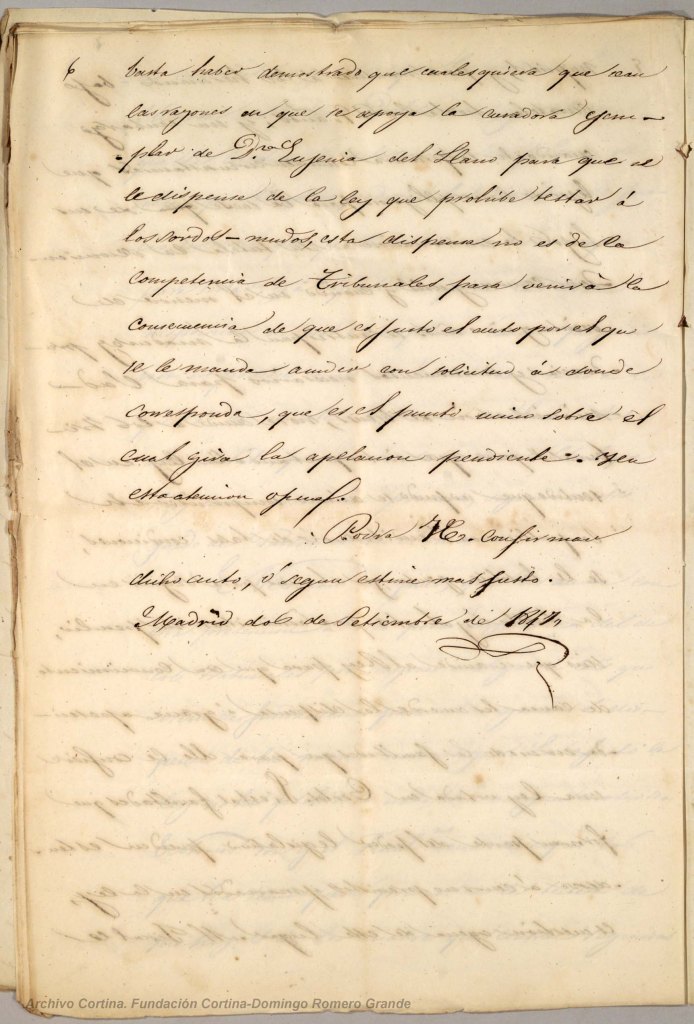 6
basta haber demostrado que cualesquiera que sean
las razones en que se apoya la curadora ejem-
plar de D.ª Eugenia del Llano para que se
le dispense de la ley que prohibe testar á
los sordos-mudos, esta dispensa no es de la
competencia de Tribunales para venir á la
consecuencia de que es justo el auto por el que
se le manda acudir con solicitud á donde
corresponda, que es el punto unico sobre el
cual gira la apelacion pendiente. Y en
esta atencion opina
Podrá V.E. confirmar
dicho auto, ó segun estime mas justo.
Madrid dos de Setiembre de
Archivo Cortina. Fundación Cortina-Domingo Romero Grande